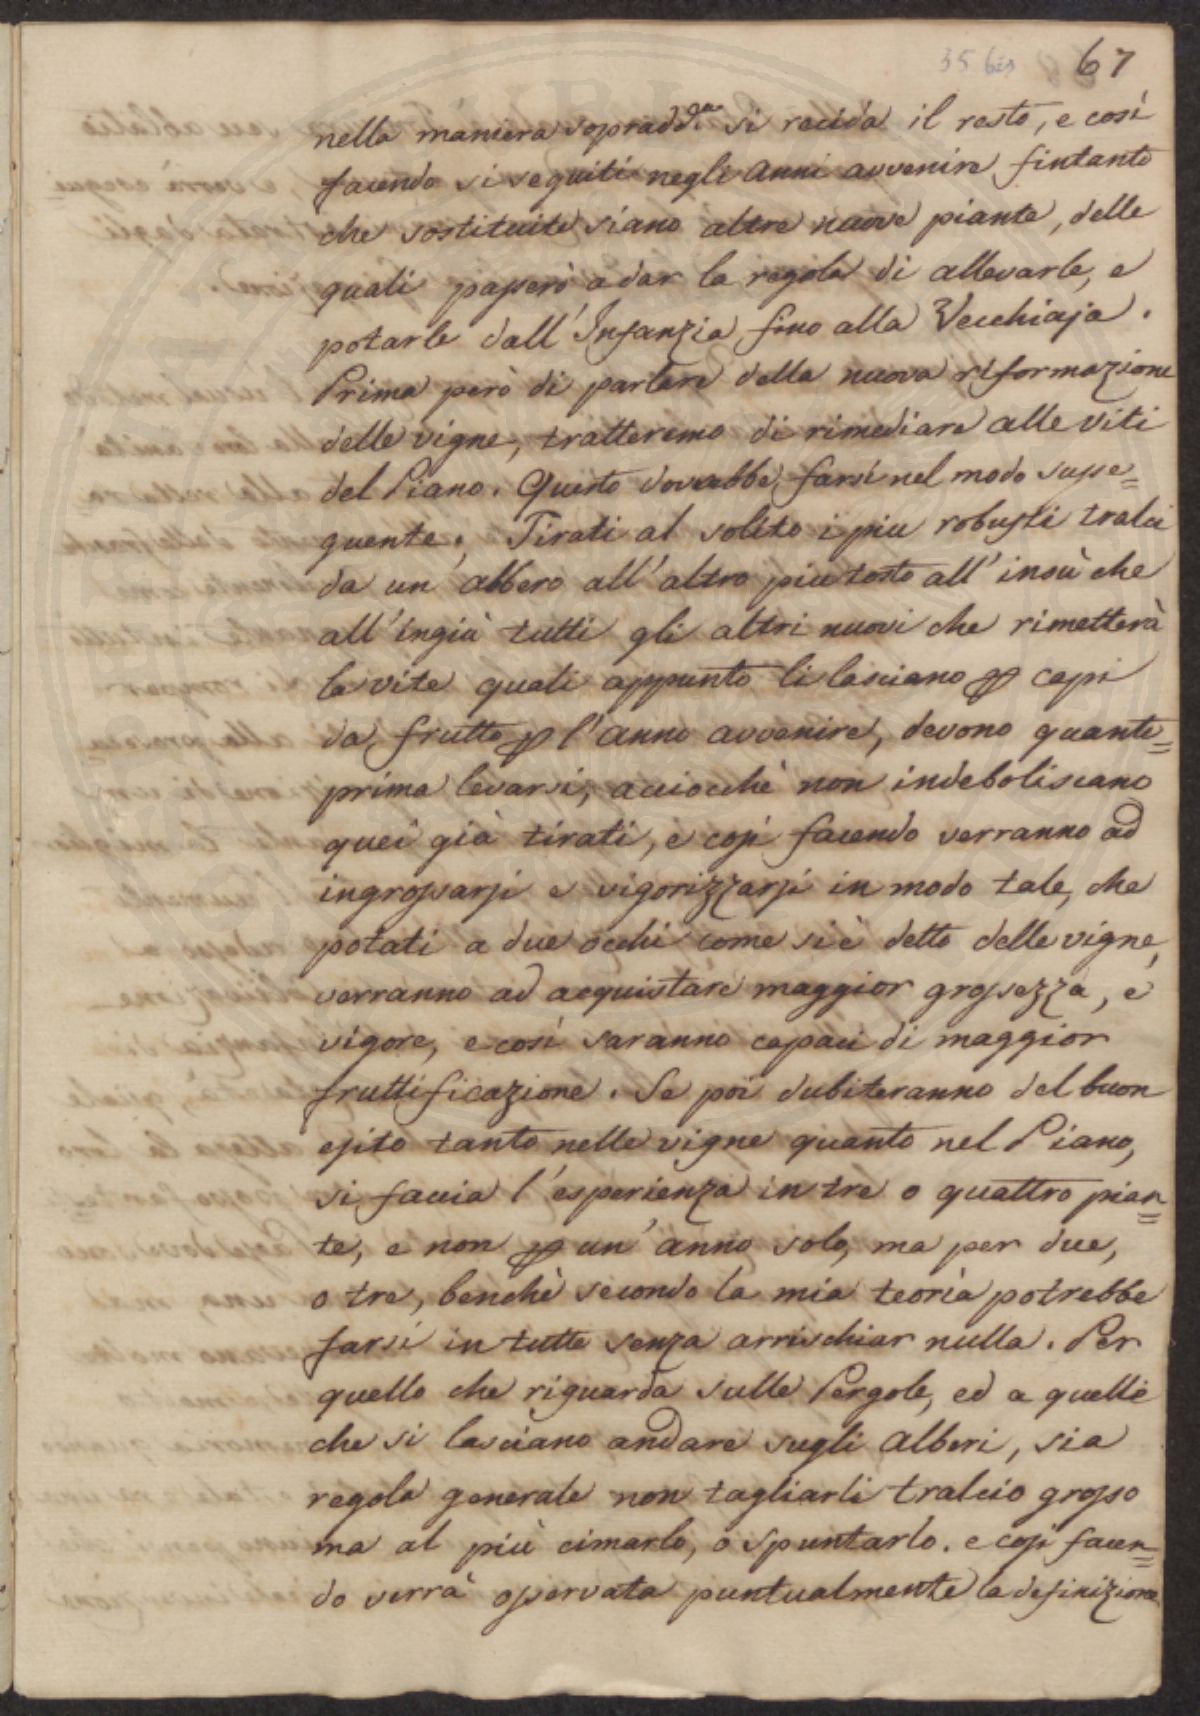 35 bis 67
nella maniera sopradd.ª si recida il resto, e così
facendo si seguiti negli anni avvenire fintanto
che sostituite siano altre nuove piante, delle
quali passerò a dar la regola di allevarle, e
potarle dall'Infanzia fino alla Vecchiaja.
Prima però di parlare della nuova riformazione
delle vigne, tratteremo di rimediare alle viti
del Piano. Questo dovrebbe farsi nel modo susse=
guente. Tirati al solito i piu robusti tralci
da un'albero all'altro piu tosto all'insù che
all'ingiù tutti gli altri nuovi che rimetterà
la vite quali appunto li lasciano p capi
da frutto p l'anno avvenire, devono quanto=
prima levarsi, acciocchè non indeboliscano
quei già tirati, e così facendo verranno ad
ingrossarsi e vigorizzarsi in modo tale, che
potati a due occhi come si è detto delle vigne,
verranno ad acquistare maggior grossezza, e
vigore, e così saranno capaci di maggior
fruttificazione. Se poi dubiteranno del buon
esito tanto nelle vigne quanto nel Piano,
si faccia l'esperienza in tre o quattro pian=
te, e non p un'anno solo, ma per due,
o tre, benchè secondo la mia teoria potrebbe
farsi in tutte senza arrischiar nulla. Per
quello che riguarda sulle Pergole, ed a quelle
che si lasciano andare sugli Alberi, sia
regola generale non tagliarli tralcio grosso
ma al più cimarlo, o spuntarlo. e così facen=
do verrà osservata puntualmente la definizione